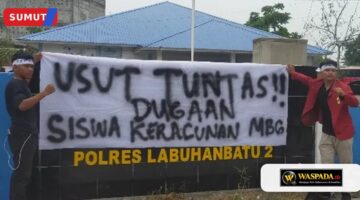 SUMUT
USUT TUNTAS!!
DUGAAN
SISWA KERACUNAN MBG
POLRES LABUHANBATU 2
WASPADA